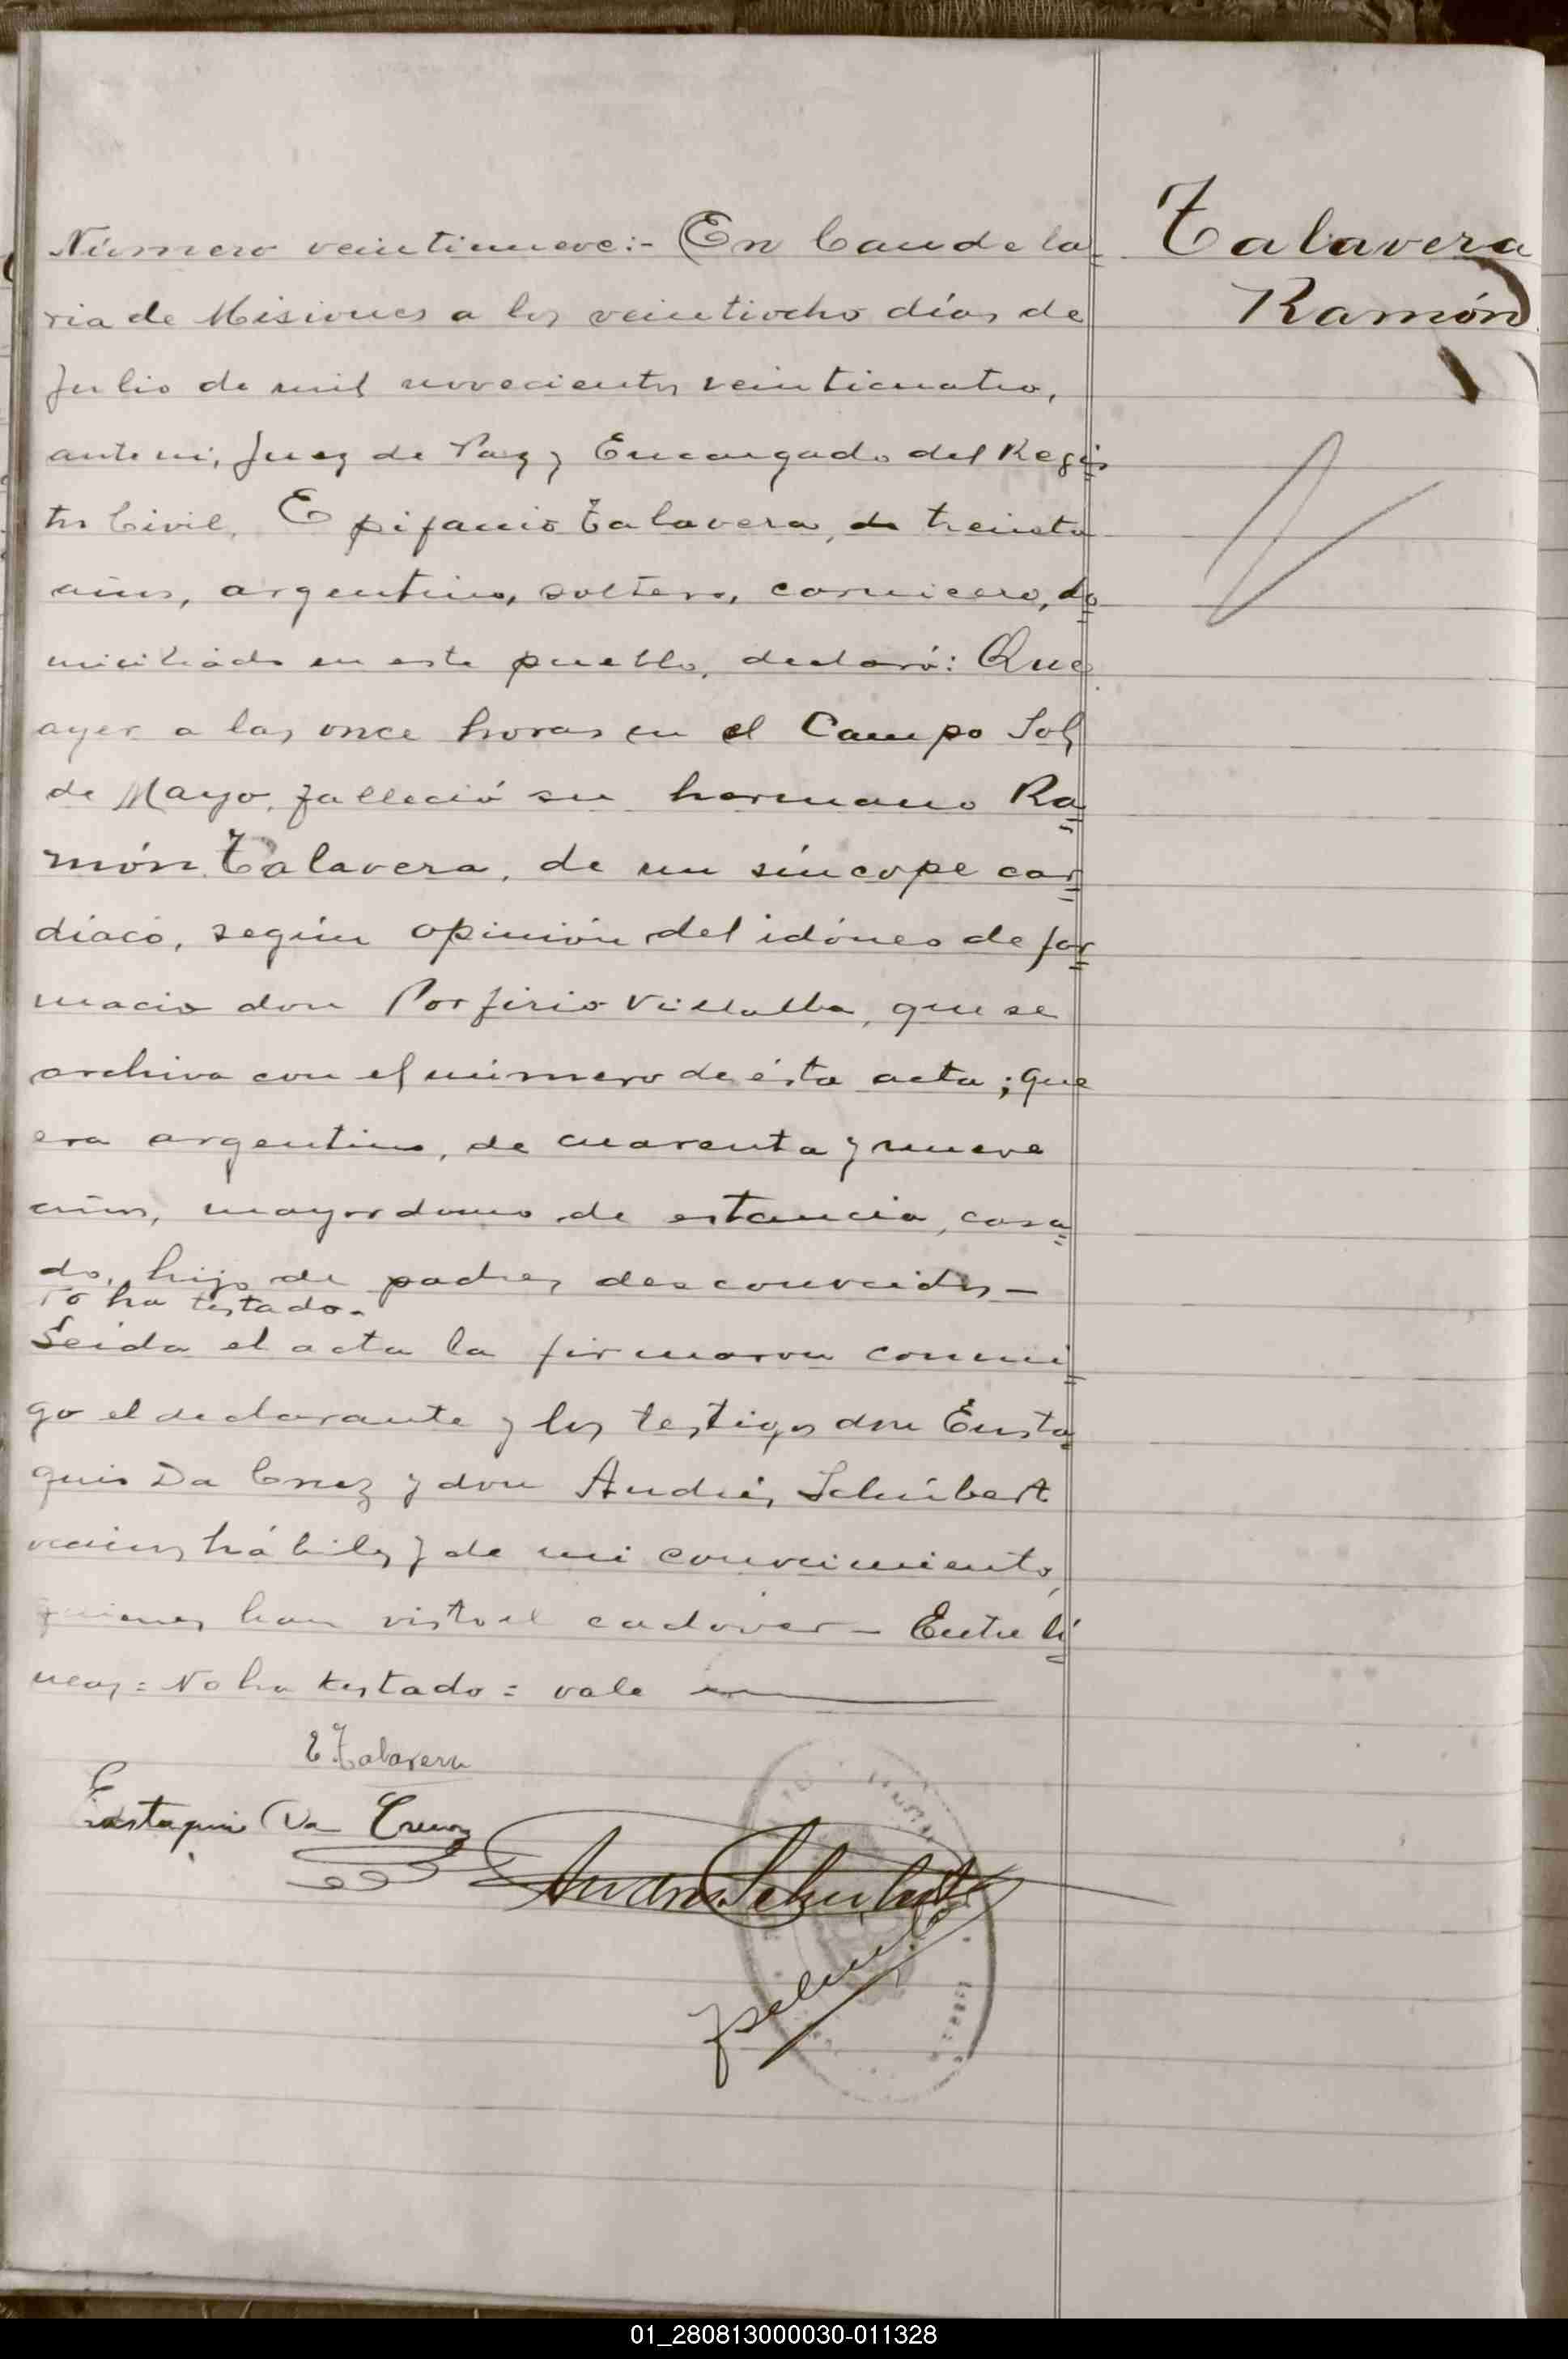 Talavera
Ramón
Número veintinueve:- En Candela=
ria de Misiones a los veintiocho días de
Julio de mil novecientos veinticuatro,
ante mi, Juez de Paz y Encargado del Regis=
tro Civil, Epifanio Talavera, de treinta
años, argentino, soltero, carnicero, do=
miciliado en este pueblo, declaró: Que
ayer a las once horas en el Campo Sol
de Mayo, falleció su hermano Ra=
món Talavera, de un síncope car=
díaco, según opinión del idóneo de far=
macia don Porfirio Villalba, que se
archiva con el número de ésta acta; que
era argentino, de cuarenta y nueve
años, mayordomo de estancia, casa=
do, hijo de padres desconocidos -
No ha testado -
Leida el acta la firmaron conmi=
go el declarante y los testigos don Eusta=
quio Da Cruz y don Andrés Schúbert
vecinos hábiles y de mi conocimiento,
quienes han visto el cadáver - Entre lí=
neas = No ha testado = vale
E Talavera
Eustaquio Da Cruz
Andres Schubert
01_280813000030-011328